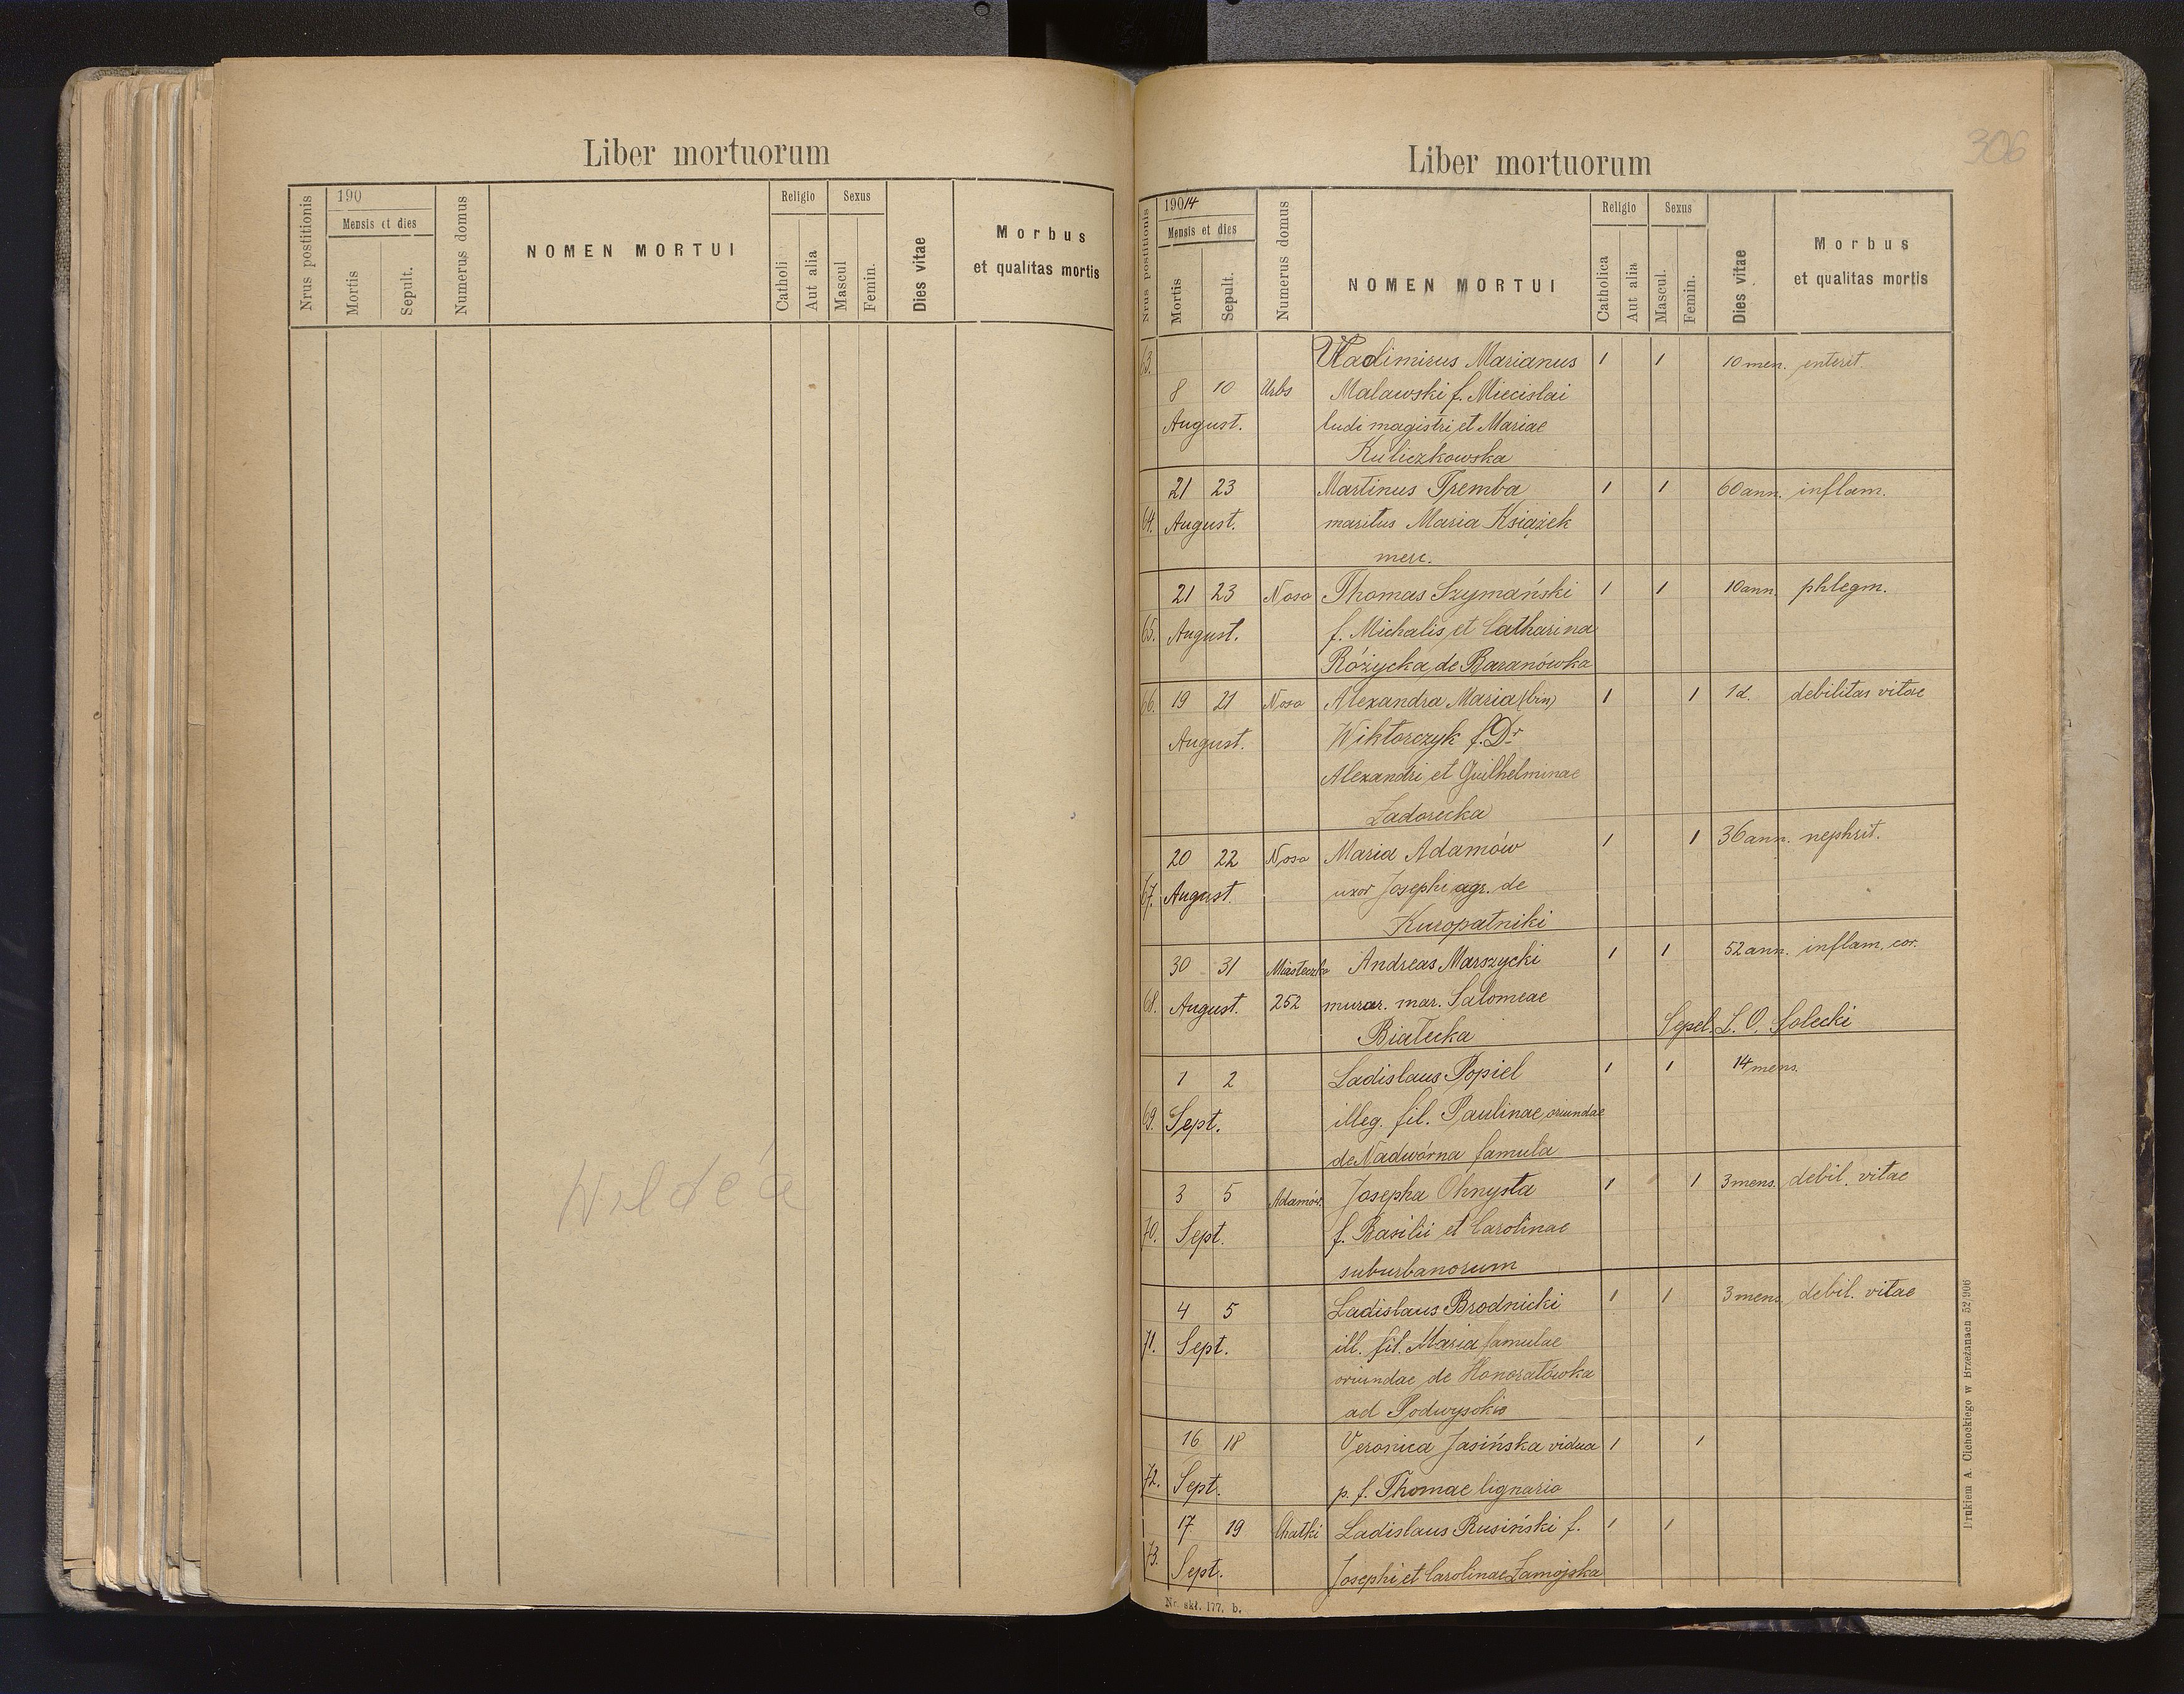 Liber mortuorum
Nrus postitionis
190
Mensis et dies
Mortis
Sepult.
Numerus domus
NOMEN MORTUI
Religio
Catholi
Aut alia
Sexus
Mascul
Femin.
Dies vitae
Morbus
et qualitas mortis
306
Liber mortuorum
Nrus postitionis
19014
Mensis et dies
Mortis
Sepult.
Numerus domus
NOMEN MORTUI
Religio
Catholica
Aut alia
Sexus
Mascul.
Femin.
Dies vitae
Morbus
et qualitas mortis
63. Vladimirus Marianus 1 1 10 men. enterit.
8 10 Urbs Malawski f. Miecislai
August. ludi magistri et Mariae
Kuliczkowska
21 23 Martinus Tremba 1 1 60 ann. inflam.
64. August. maritus Maria Książek
merc.
21 23 Thomas Szymański 1 1 10 ann. phlegm.
65. August. f. Michalis et Catharina
Różycka de Baranówka
66. 19 21 Alexandra Maria (bin) 1 1 1 d. debilitas vitae
August. Wiktorczyk f. Dr
Alexandri et Guilhelminae
Zadorecka
20 22 Maria Adamów 1 1 36 ann. nephrit.
67. August. uxor Josephi agr. de
Kuropatniki
30 31 Miasteczko Andreas Marszycki 1 1 52 ann. inflam. cor.
68. August. 252 murar. mar. Salomeae
Białecka Sepel. L. O. Solecki
1 2 Ladislaus Popiel 1 1 14 mens.
69. Sept. illeg. fil. Paulinae oriundae
de Nadwórna famula
3 5 Adamów. Josepha Ohnysta 1 1 3 mens. debil. vitae
70. Sept. f. Basilii et Carolinae
suburbanorum
4 5 Ladislaus Brodnicki 1 1 3 mens. debil. vitae
71. Sept. ill. fil. Maria famulae
oriundae de Honoratówka
ad Podwysokie
16 18 Veronica Jasińska vidua 1 1
72. Sept. p. f. Thomae lignario
17 19 Chatki Ladislaus Rusiński f. 1 1
73. Sept. Josephi et Carolinae Zamojska
Nr. skł. 177. b.
Drukiem A. Cichockiego w Brzeżanach 52 906